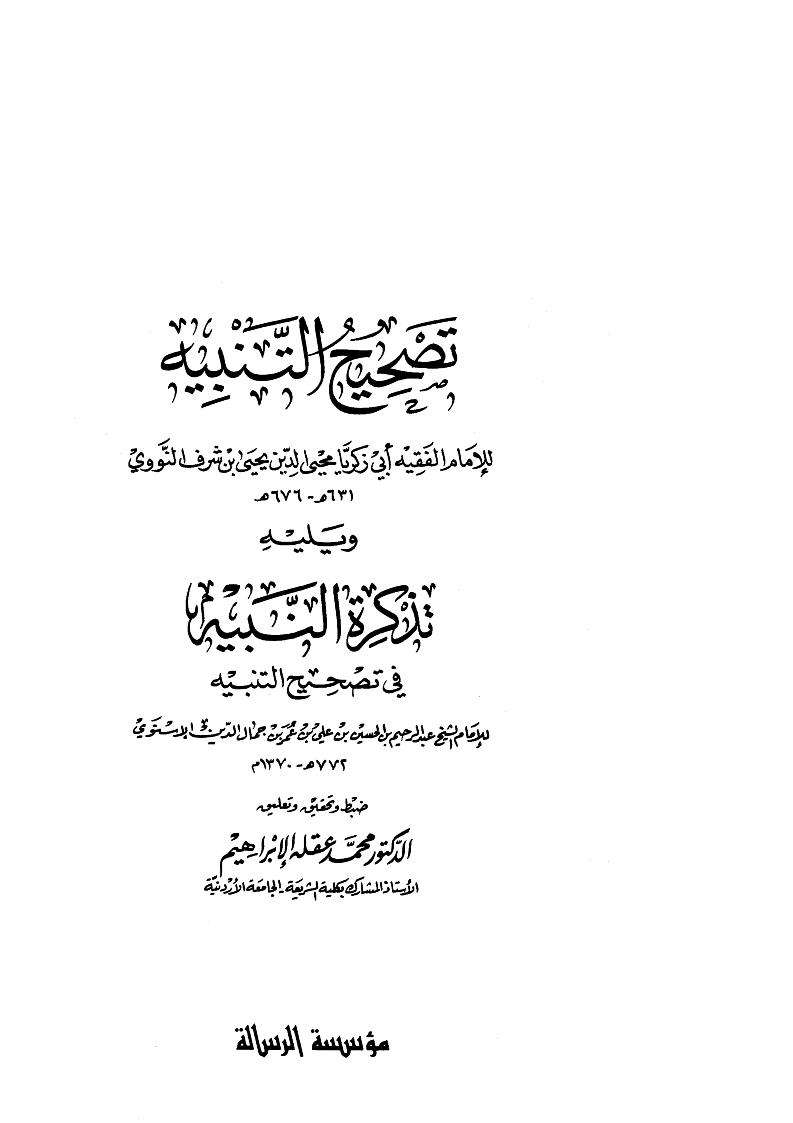 تصحيح التنبيه
للإمام الفقيه أبي زكريا محيي الدين يحيى بن شرف النووي
٦٣١هـ - ٦٧٦هـ
ويليه
تذكرة النبيه
في تصحيح التنبيه
للإمام الشيخ عبد الرحيم بن الحسين بن علي بن عمر بن جمال الدين الإسنوي
٧٧٢هـ - ١٣٧٠م
ضبط وتحقيق وتعليق
الدكتور محمد عقله الإبراهيم
الأستاذ المشارك بكلية الشريعة - الجامعة الأردنية
مؤسسة الرسالة